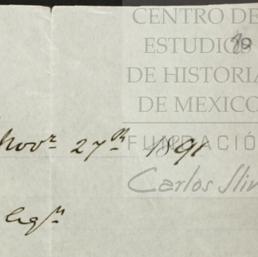 CENTRO DE
ESTUDIOS
DE HISTORIA
DE MEXICO
FUNDACIÓ
Carlos Slim
Novr 27th 1891